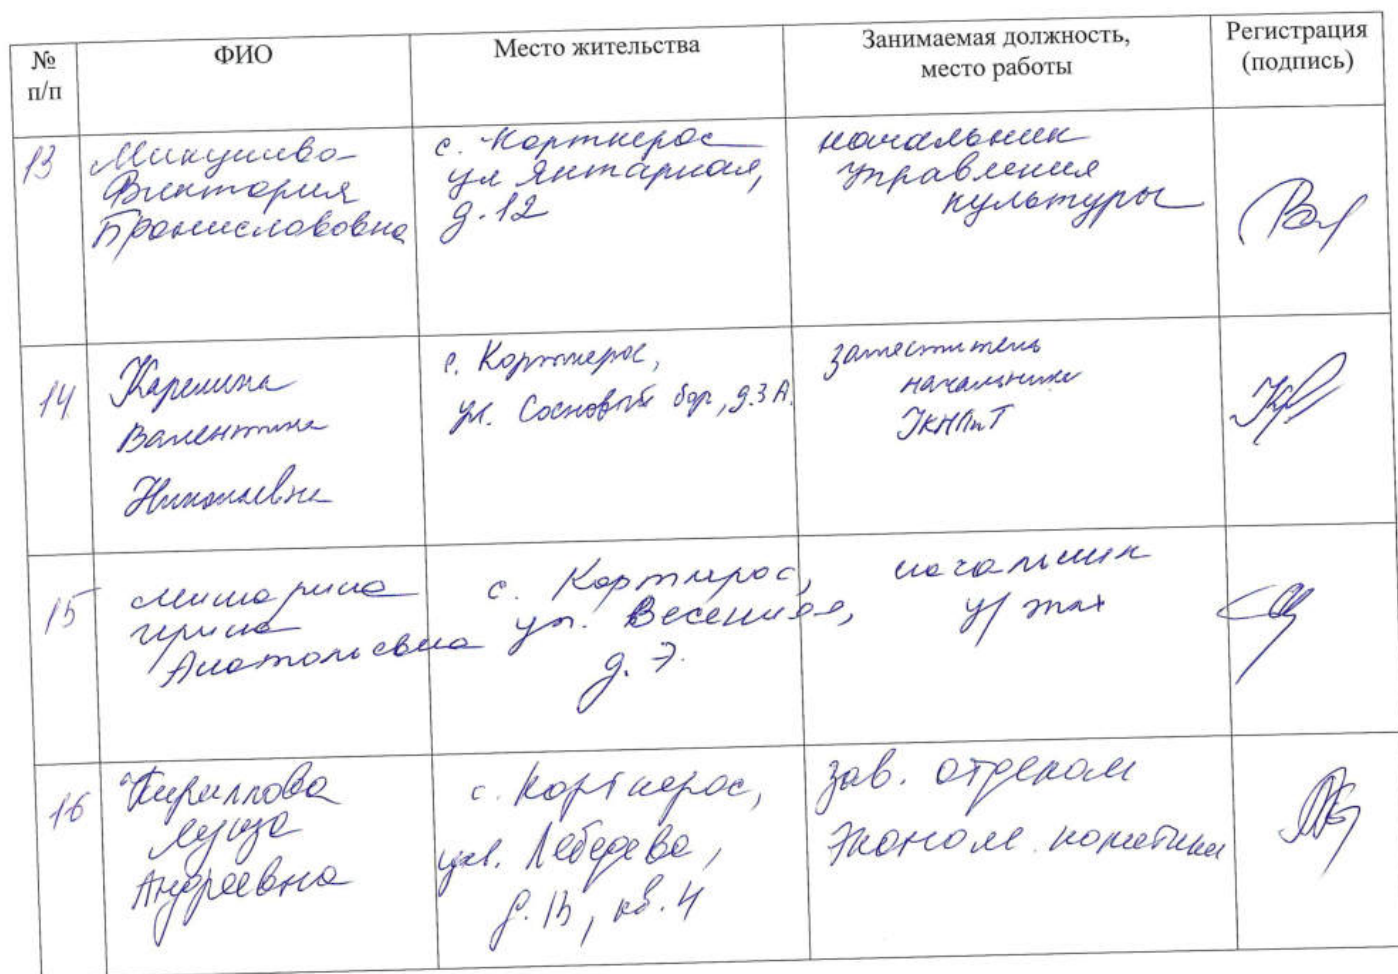 № п/п
ФИО
Место жительства
Занимаемая должность, место работы
Регистрация (подпись)
13
Микушева
Виктория
Брониславовна
с. Корткерос
ул Янтарная,
д.12
начальник
управления
культуры
14
Каренина
Валентина
Николаевна
с. Корткерос,
ул. Сосновый бор, д.3А.
заместитель
начальника
УКНПиТ
15
Мишарина
Ирина
Анатольевна
с. Корткерос,
ул. Весенняя,
д. 7.
начальник
у/ жкх
16
Кириллова
Луиза
Андреевна
с. Корткерос,
ул. Лебедева,
кв. 4
Зав. отделом
эконом. политики